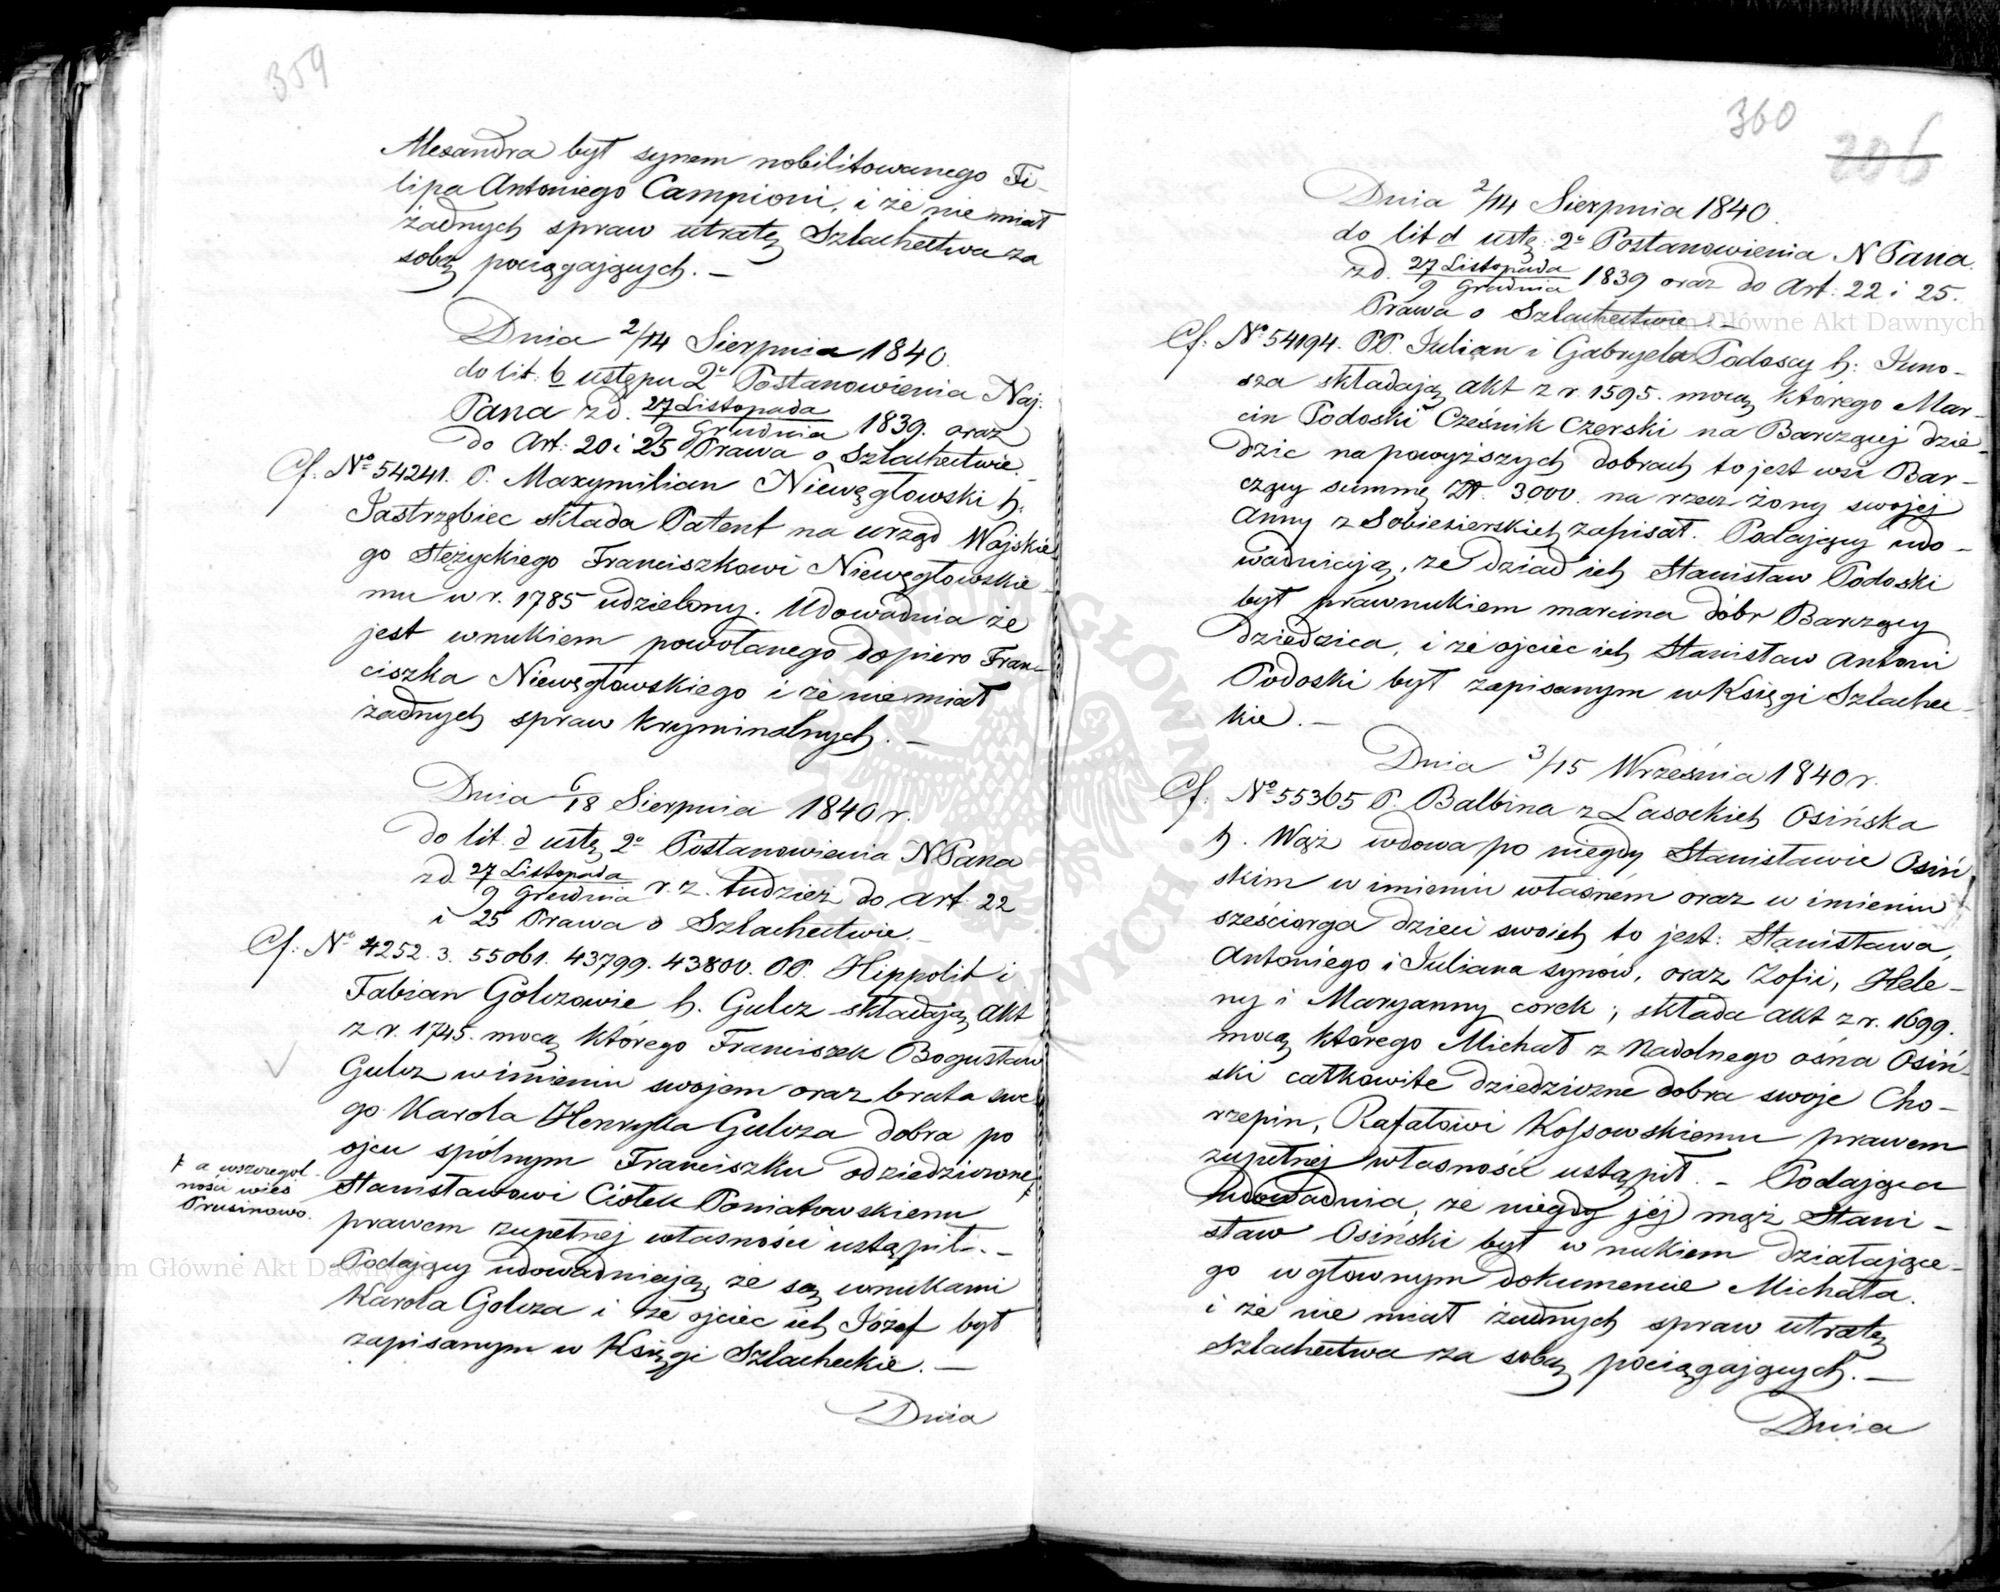 359
Alexandra był synem nobilitowanego Fi-
lipa Antoniego Campioni, i że nie miał
żadnych spraw utratę Szlachectwa za
sobą pociągających. –
Dnia 2/14 Sierpnia 1840.
do lit: b ustępu 2º Postanowienia Naj:
Pana z d. 27 Listopada / 9 Grudnia 1839. oraz
do Art: 20 i 25 Prawa o Szlachectwie.
Cf: Nº 54241. P. Maxymilian Niewęgłowski h.
Jastrzębiec składa Patent na urząd Wojskie
go Stężyckiego Franciszkowi Niewęgłowskie-
mu w r. 1785 udzielony. Udowadnia że
jest wnukiem powołanego dopiero Fran-
ciszka Niewęgłowskiego i że nie miał
żadnych spraw kryminalnych. –
Dnia 6/18 Sierpnia 1840 r.
do lit. d ustę 2º Postanowienia N Pana
z d. 27 Listopada / 9 Grudnia r. z. tudzież do art. 22
i 25 Prawa o Szlachectwie. –
Cf: Nº 4252. 3. 55061. 43799. 43800. PP. Hippolit i
Fabian Golczowie h. Gulcz składają Akt
z r. 1745. mocą którego Franciszek Bogusław
Gulcz w imieniu swojem oraz brata swe
go Karola Henryka Gulcza dobra po
ojcu spólnym Franciszku odziedziczone
ŧ a w szczegól-
ności wieś
Prusinowo.
Stanisławowi Ciołek Poniatowskiemu
prawem zupełnej własności ustąpił. –
Podający udowadniają że są wnukami
Karola Golcza i że ojciec ich Józef był
zapisanym w Księgi Szlacheckie. –
Dnia
360
206
Dnia 2/14 Sierpnia 1840.
do lit d ustę: 2º Postanowienia N Pana.
z d. 27 Listopada / 9 Grudnia 1839 oraz do Art: 22 i 25.
Prawa o Szlachectwie –
Cf: Nº 54194. PP. Julian i Gabryela Podoscy h: Juno-
sza składają akt z r. 1595. mocą którego Mar-
cin Podoski Cześnik Czerski na Barczącej dzie-
dzic na powyższych dobrach to jest wsi Bar-
czący summę Zł. 3000. na rzecz żony swojej
Anny z Sobiesierskich zapisał. Podający udo-
wadniają, że dziad ich Stanisław Podoski
był prawnukiem marcina dóbr Barczący
dziedzica, i że ojciec ich Stanisław Antoni
Podoski był zapisanym w Księgi Szlachec-
kie. –
Dnia 3/15 Września 1840 r.
Cf: Nº 55365 P. Balbina z Lasockich Osińska
h. Wąż wdowa po niegdy Stanisławie Osiń
skim w imieniu własném oraz w imieniu
sześciorga dzieci swoich to jest: Stanisława,
Antoniego i Juliana synów, oraz Zofii, Hele-
ny i Maryanny córek; składa akt z r. 1699.
mocą którego Michał z Nadolnego ośna Osiń-
ski całkowite dziedziczne dobra swoje Cho-
rzepin, Rafałowi Kossowskiemu prawem
zupełnej własności ustąpił. – Podająca
udowadnia, że niegdy jéj mąż Stani-
sław Osiński był wnukiem działające-
go w głównym dokumencie Michała.
i że nie miał żadnych spraw utratę
Szlachectwa za sobą pociągających. –
Dnia
Archiwum Główne Akt Dawnych
Archiwum Główne Akt Dawnych